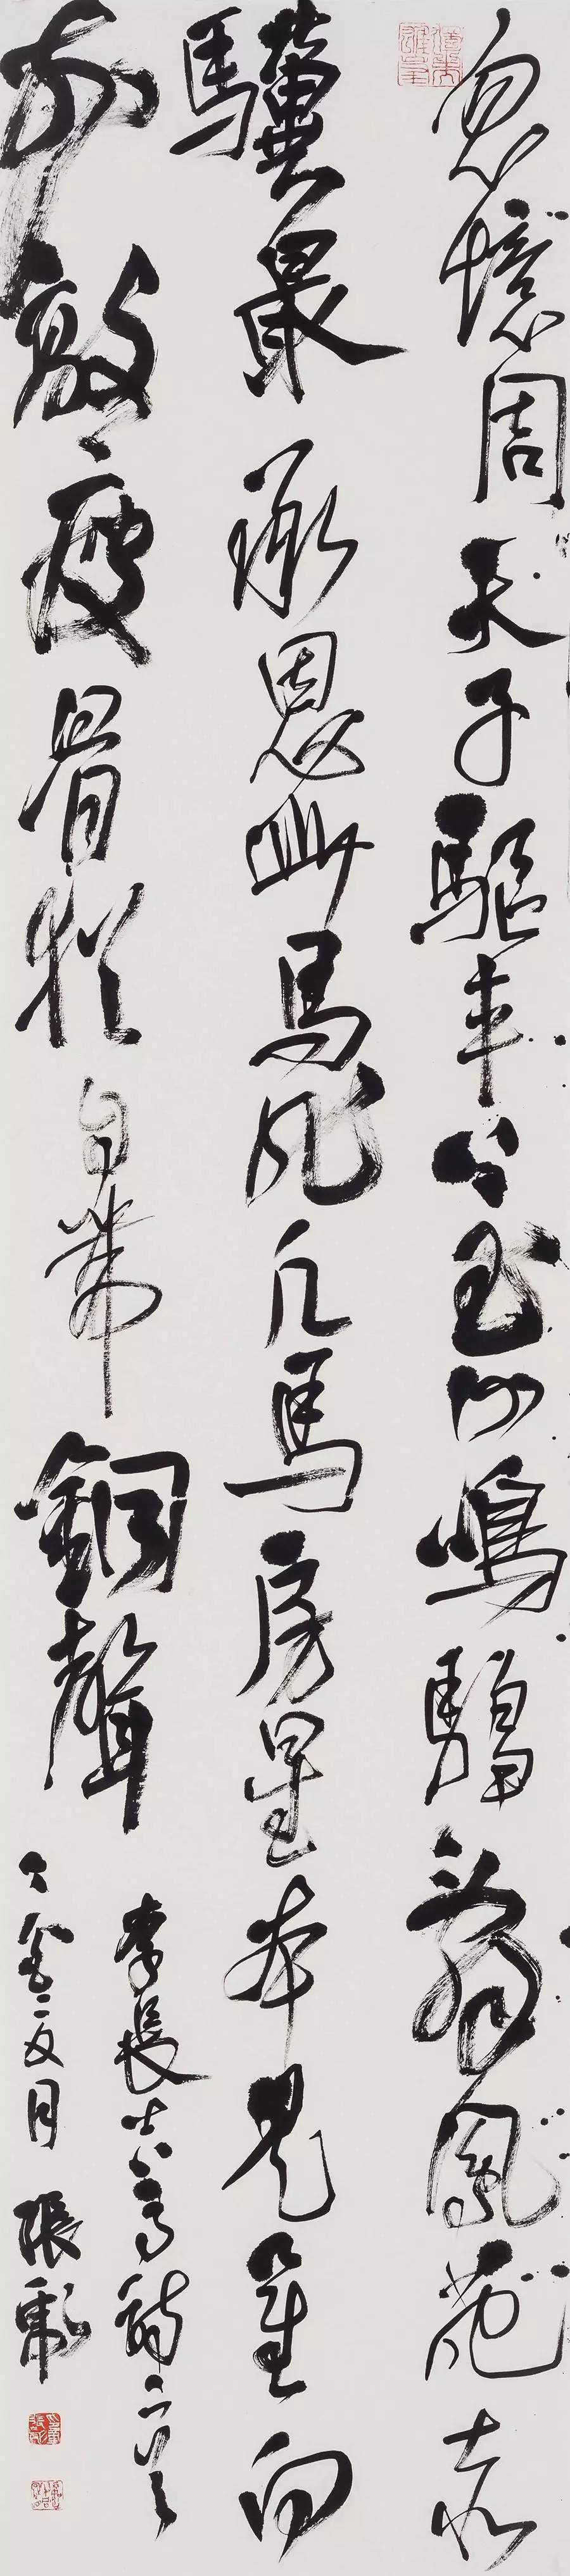 忽憶周天子驅車上玉山鳴騶辭鳳苑赤
驥最承恩此馬非凡馬房星本是星向
前敲瘦骨猶自帶銅聲
李長吉馬詩二首
月張彪